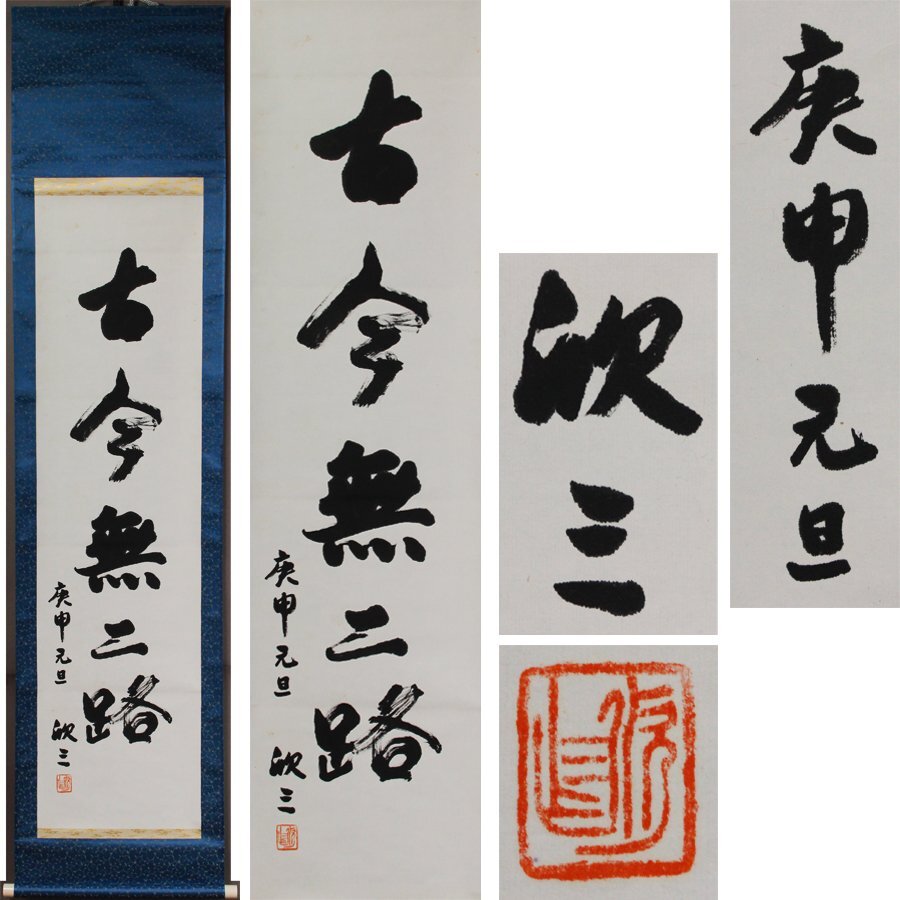 古今無二路
庚申元旦
欣三
古今無二路
庚申元旦
欣三
欣三
庚申元旦